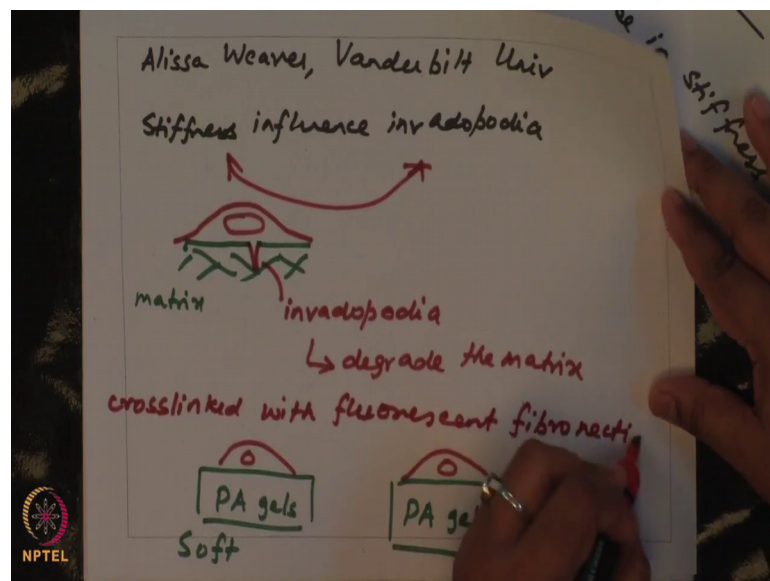 Alissa Weaver, Vanderbilt Univ
Stiffness influence invadopodia
matrix
invadopodia
degrade the matrix
crosslinked with fluorescent fibronecti
PA gels
PA ge
Soft
stiffness
NPTEL